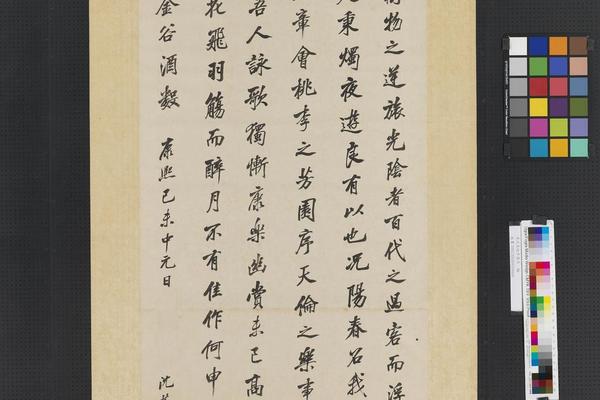 物之逆旅光陰者百代之過客而浮
秉燭夜遊良有以也況陽春召我
章會桃李之芳園序天倫之樂事
吾人詠歌獨慚康樂幽賞未已高
花飛羽觴而醉月不有佳作何申
金谷酒數 康熙己未中元日
沈